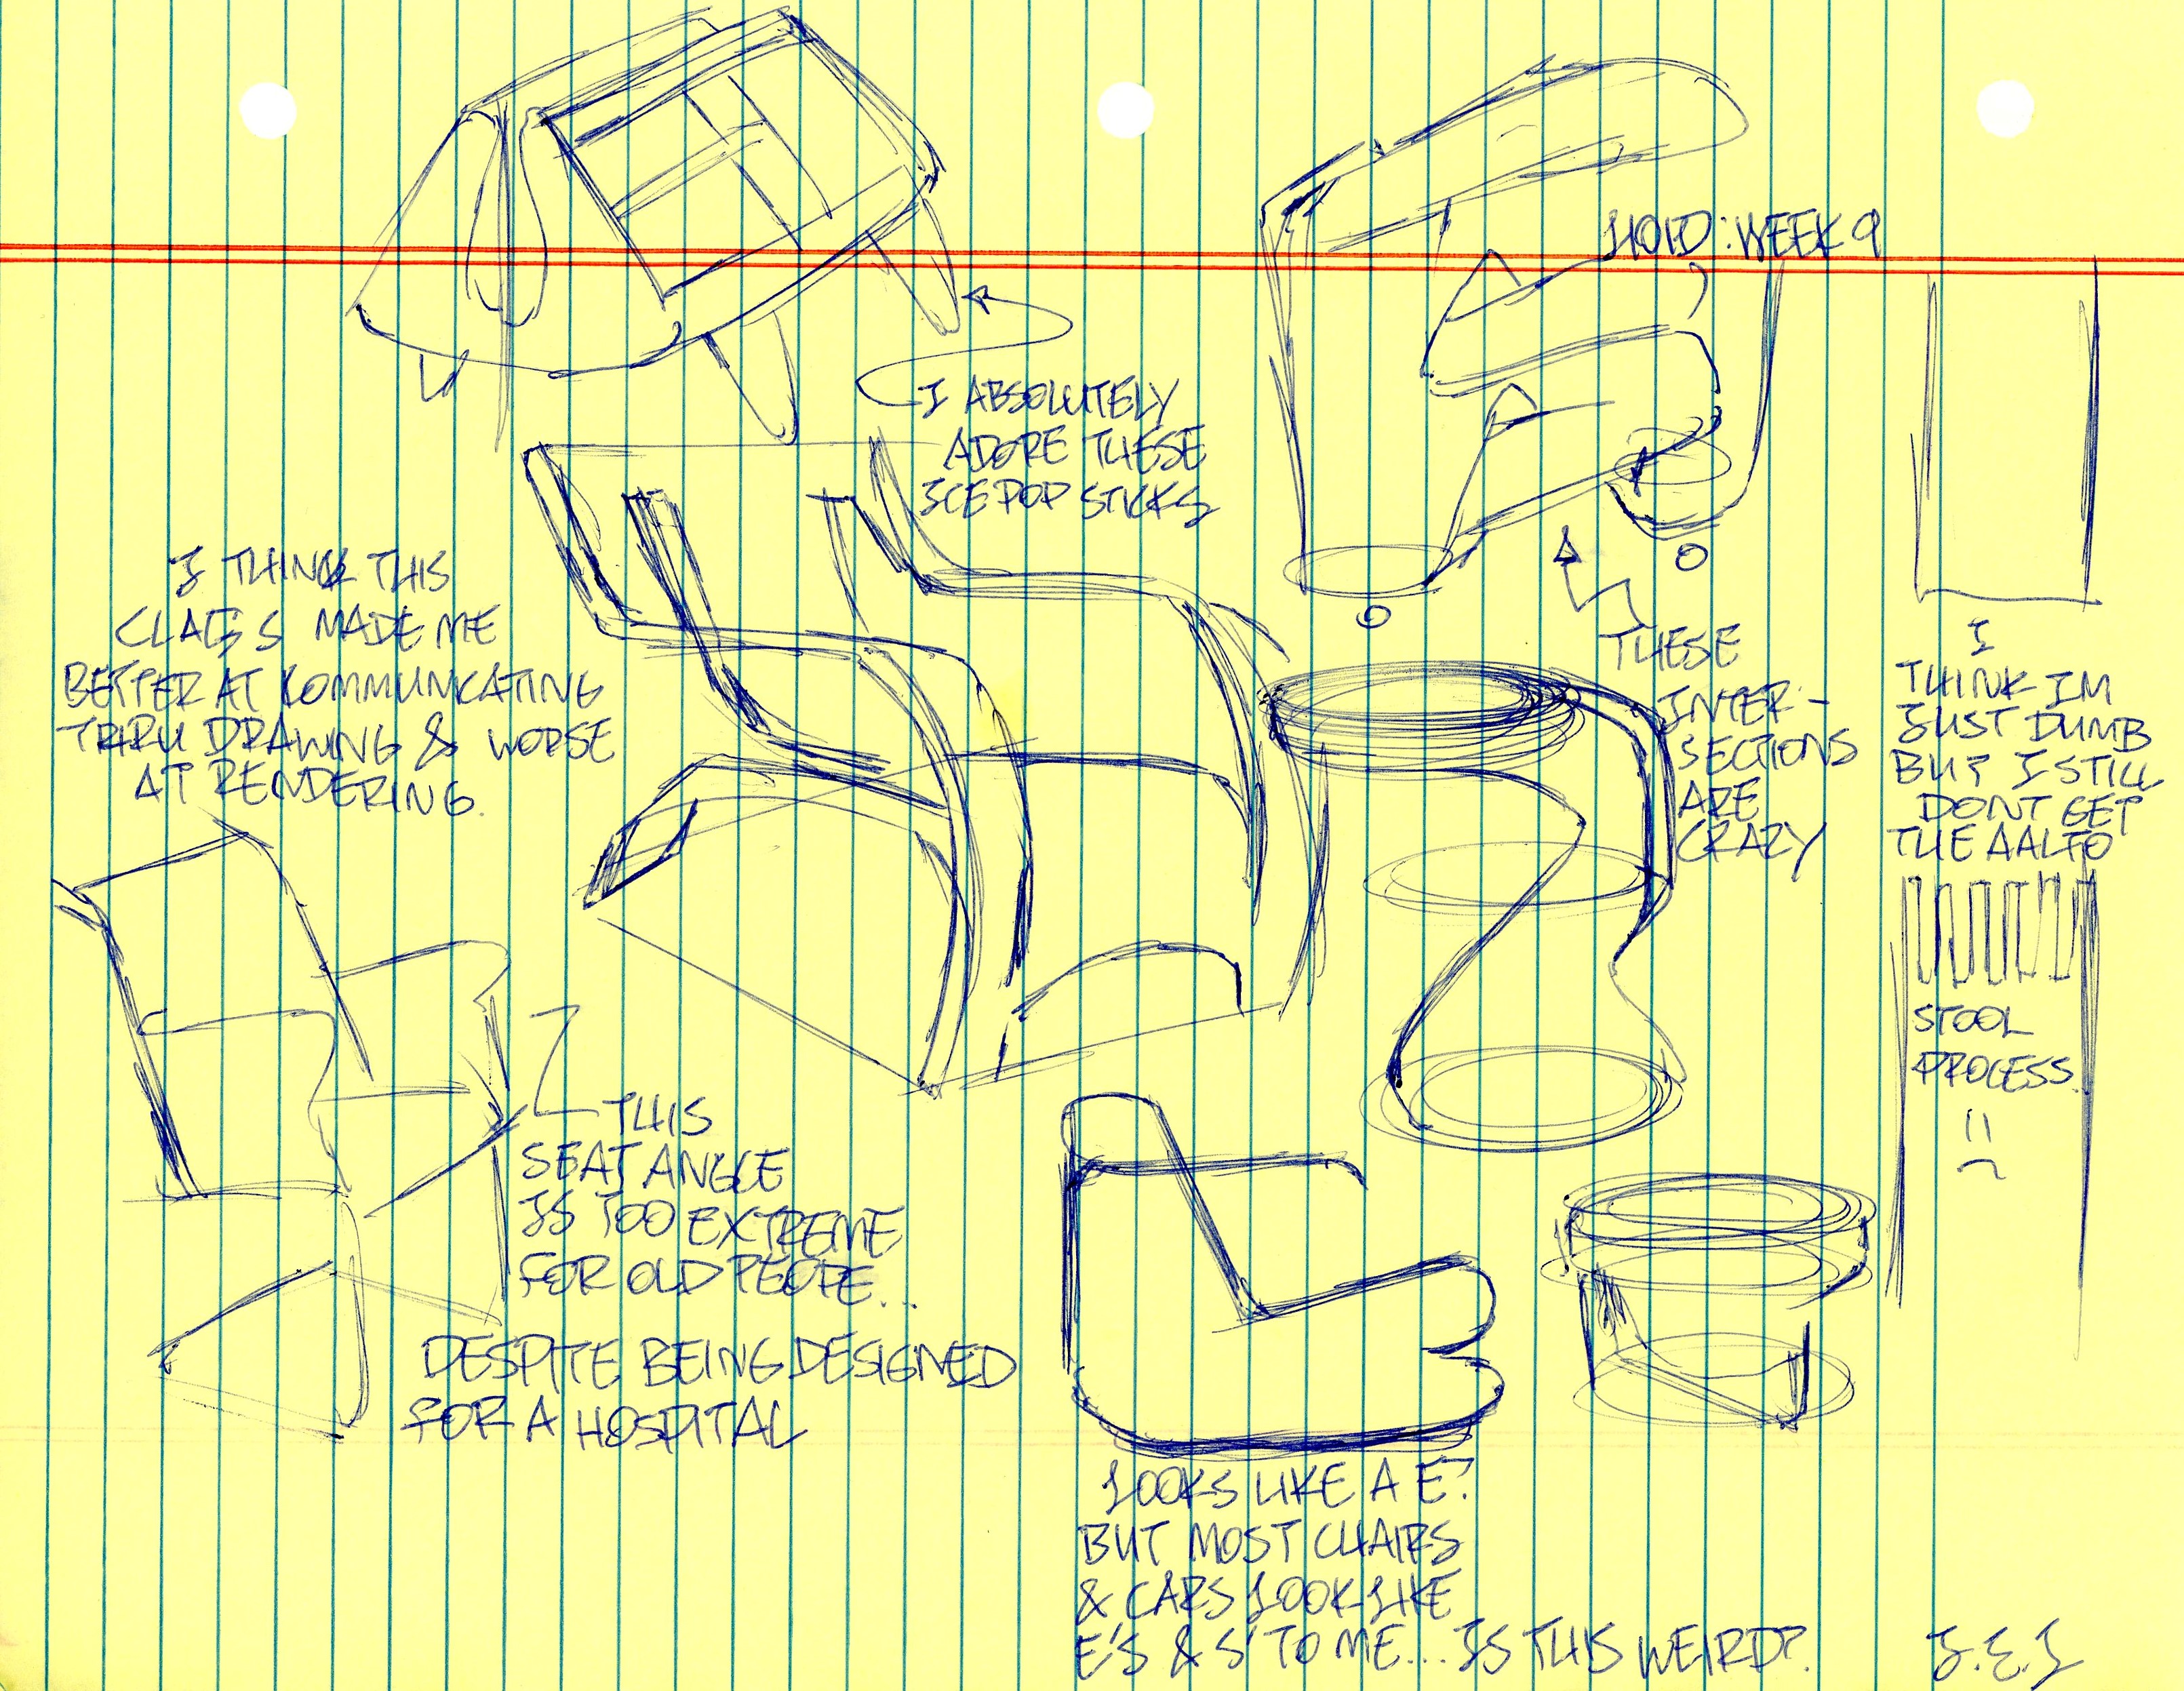 HOID: WEEK 9
I ABSOLUTELY
ADORE THESE
ICE POP STICKS
I THINK THIS
CLASS MADE ME
BETTER AT KOMMUNICATING
THRU DRAWING & WORSE
AT RENDERING.
THESE
INTER-
SECTIONS
ARE
CRAZY
I
THINK IM
JUST DUMB
BUT I STILL
DONT GET
THE AALTO
STOOL
PROCESS.
THIS
SEAT ANGLE
IS TOO EXTREME
FOR OLD PEOPE...
DESPITE BEING DESIGNED
FOR A HOSPITAL
LOOKS LIKE A E?
BUT MOST CHAIRS
& CARS LOOK LIKE
E'S & S' TO ME... IS THIS WEIRD?
J.E.I